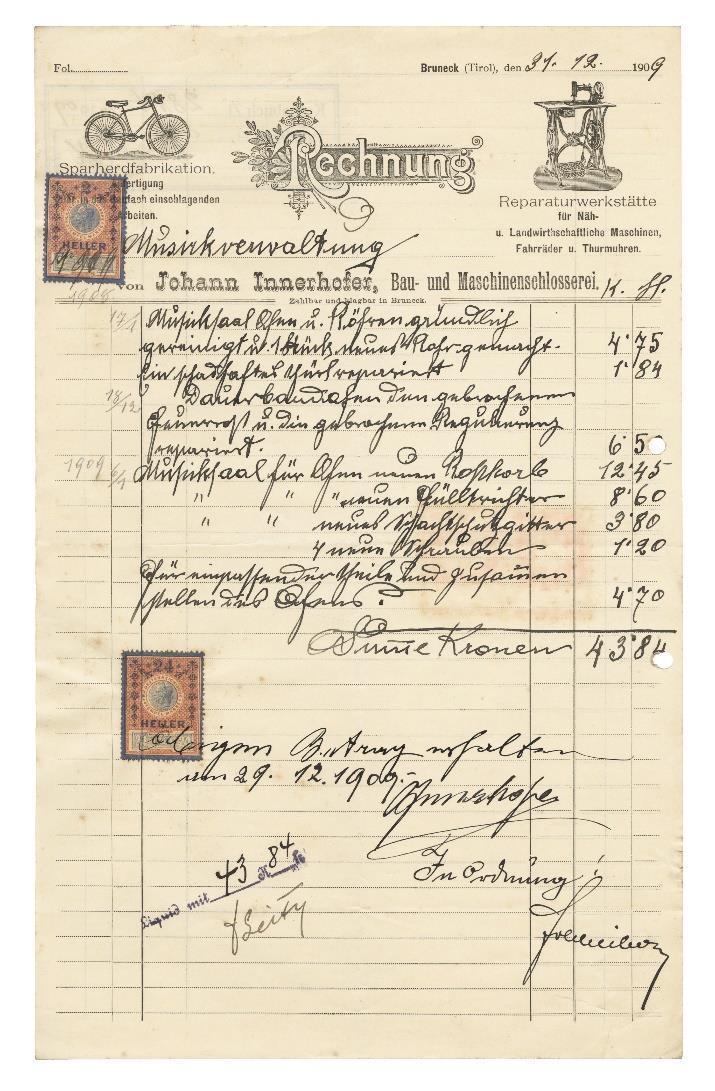 Fol.
Bruneck (Tirol), den 31. 12. 1909
Rechnung
Sparherdfabrikation.
fertigung
fach einschlagenden
Arbeiten.
Reparaturwerkstätte
für Näh-
u. Landwirthschaftliche Maschinen,
Fahrräder u. Thurmuhren.
2
HELLER
1909
1908
Musikverwaltung
von Johann Innerhofer, Bau- und Maschinenschlosserei. K. H.
Zahlbar und klagbar in Bruneck.
17/1 Musiksaal Ofen u. Röhren gründlich
gereinigt u. 1 Stück neues Rohr gemacht. 4·75
Ein schadhaftes repariert 1·84
18/12 Dauerbrandofen den gebrochenen
Feuerrost u. die gebrochene Regulierung
repariert. 6 5
1909 6/1 Musiksaal für Ofen neuen Rostkorb 12·45
" " " neuen Fülltrichter 8·60
" " neues Schachtschutzgitter 3·80
4 neue Schrauben 1·20
Für einpassen der Theile und zusammen
stellen des Ofens 4·70
Summe Kronen 43·84
24
HELLER
Obigen Betrag erhalten
am 29. 12. 1909.
Innerhofer
Liquid mit 43 K 84 h
In Ordnung!